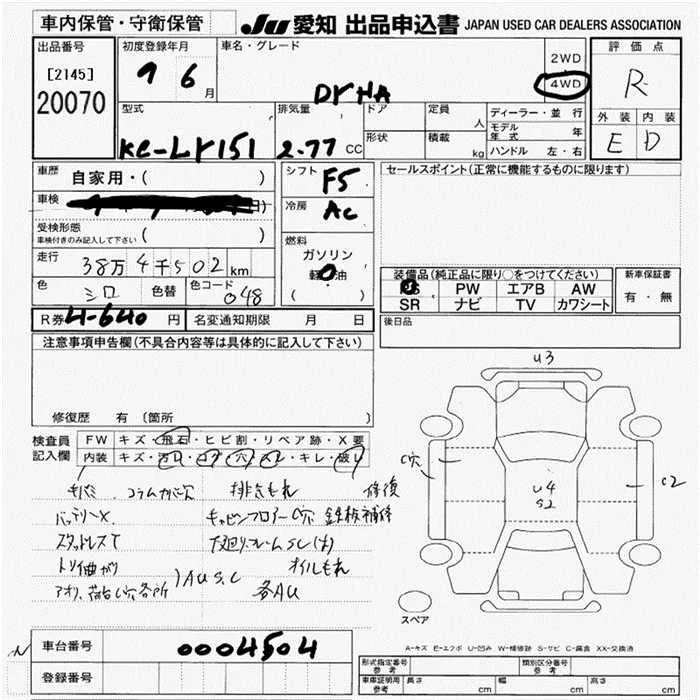 車内保管・守衛保管
JU 愛知 出品申込書 JAPAN USED CAR DEALERS ASSOCIATION
出品番号
[2145]
20070
初度登録年月
9 6月
車名・グレード
DYHA
2WD
4WD
評価点
R
外装 内装
E D
型式
KC-LY151
排気量
2.77 CC
ドア
形状
定員 人
積載 kg
ディーラー・並行
モデル年式 年
ハンドル 左・右
車歴
自家用・( )
車検
受検形態
車検付きのみ記入して下さい ( )
走行
38万4千502km
色
シロ
色替
色コード
048
シフト
F5
冷房
AC
燃料
ガソリン
軽油
( )
セールスポイント(正常に機能するものに限ります)
装備品(純正品に限り○をつけてください)
PS PW エアB AW
SR ナビ TV カワシート
新車保証書
有・無
R券 4-640 円
名変通知期限 月 日
後日品
注意事項申告欄(不具合内容等は具体的に記入して下さい)
修復歴 有 〔箇所 〕
検査員
記入欄
FW キズ・飛石・ヒビ割・リペア跡・X要
内装 キズ・汚レ・コゲ・穴・スレ・キレ・破レ
コラムカバ穴 排気もれ 修復
バッテリーX キャビンフロアーC穴 鉄板補修
スタッドレスT 下廻りフレームSC(大)
トリ曲がり オイルもれ
アオリ、荷台C穴各所 )AU S,C 各AU
U3
C穴
U4
S2
C2
スペア
A-キズ E-エクボ U-凹み W-補修跡 S-サビ C-腐食 XX-交換済
車台番号
0004504
登録番号
形式指定番号 参考
類別区分番号 参考
車庫証明用 参考
長さ cm 幅 cm 高さ cm